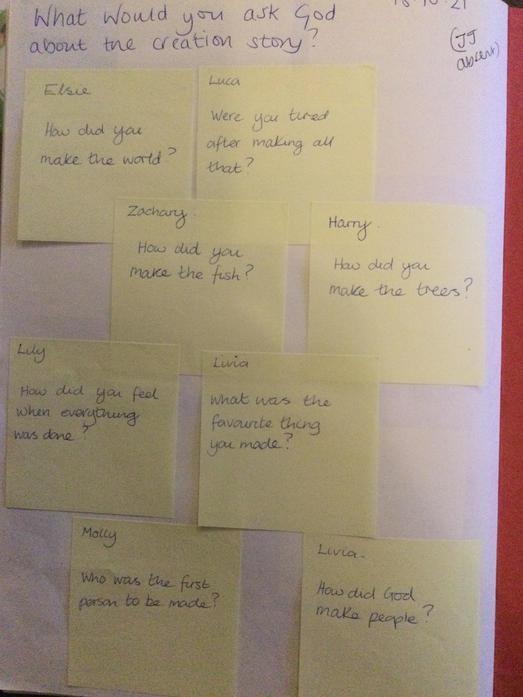 What would you ask God
about the creation story?
18.10.21
(JJ
absent)
Elsie
How did you
make the world?
Luca
Were you tired
after making all
that?
Zachary.
How did you
make the fish?
Harry.
How did you
make the trees?
Lily
How did you feel
when everything
was done?
Livia
What was the
favourite thing
you made?
Molly
Who was the first
person to be made?
Livia.
How did God
make people?